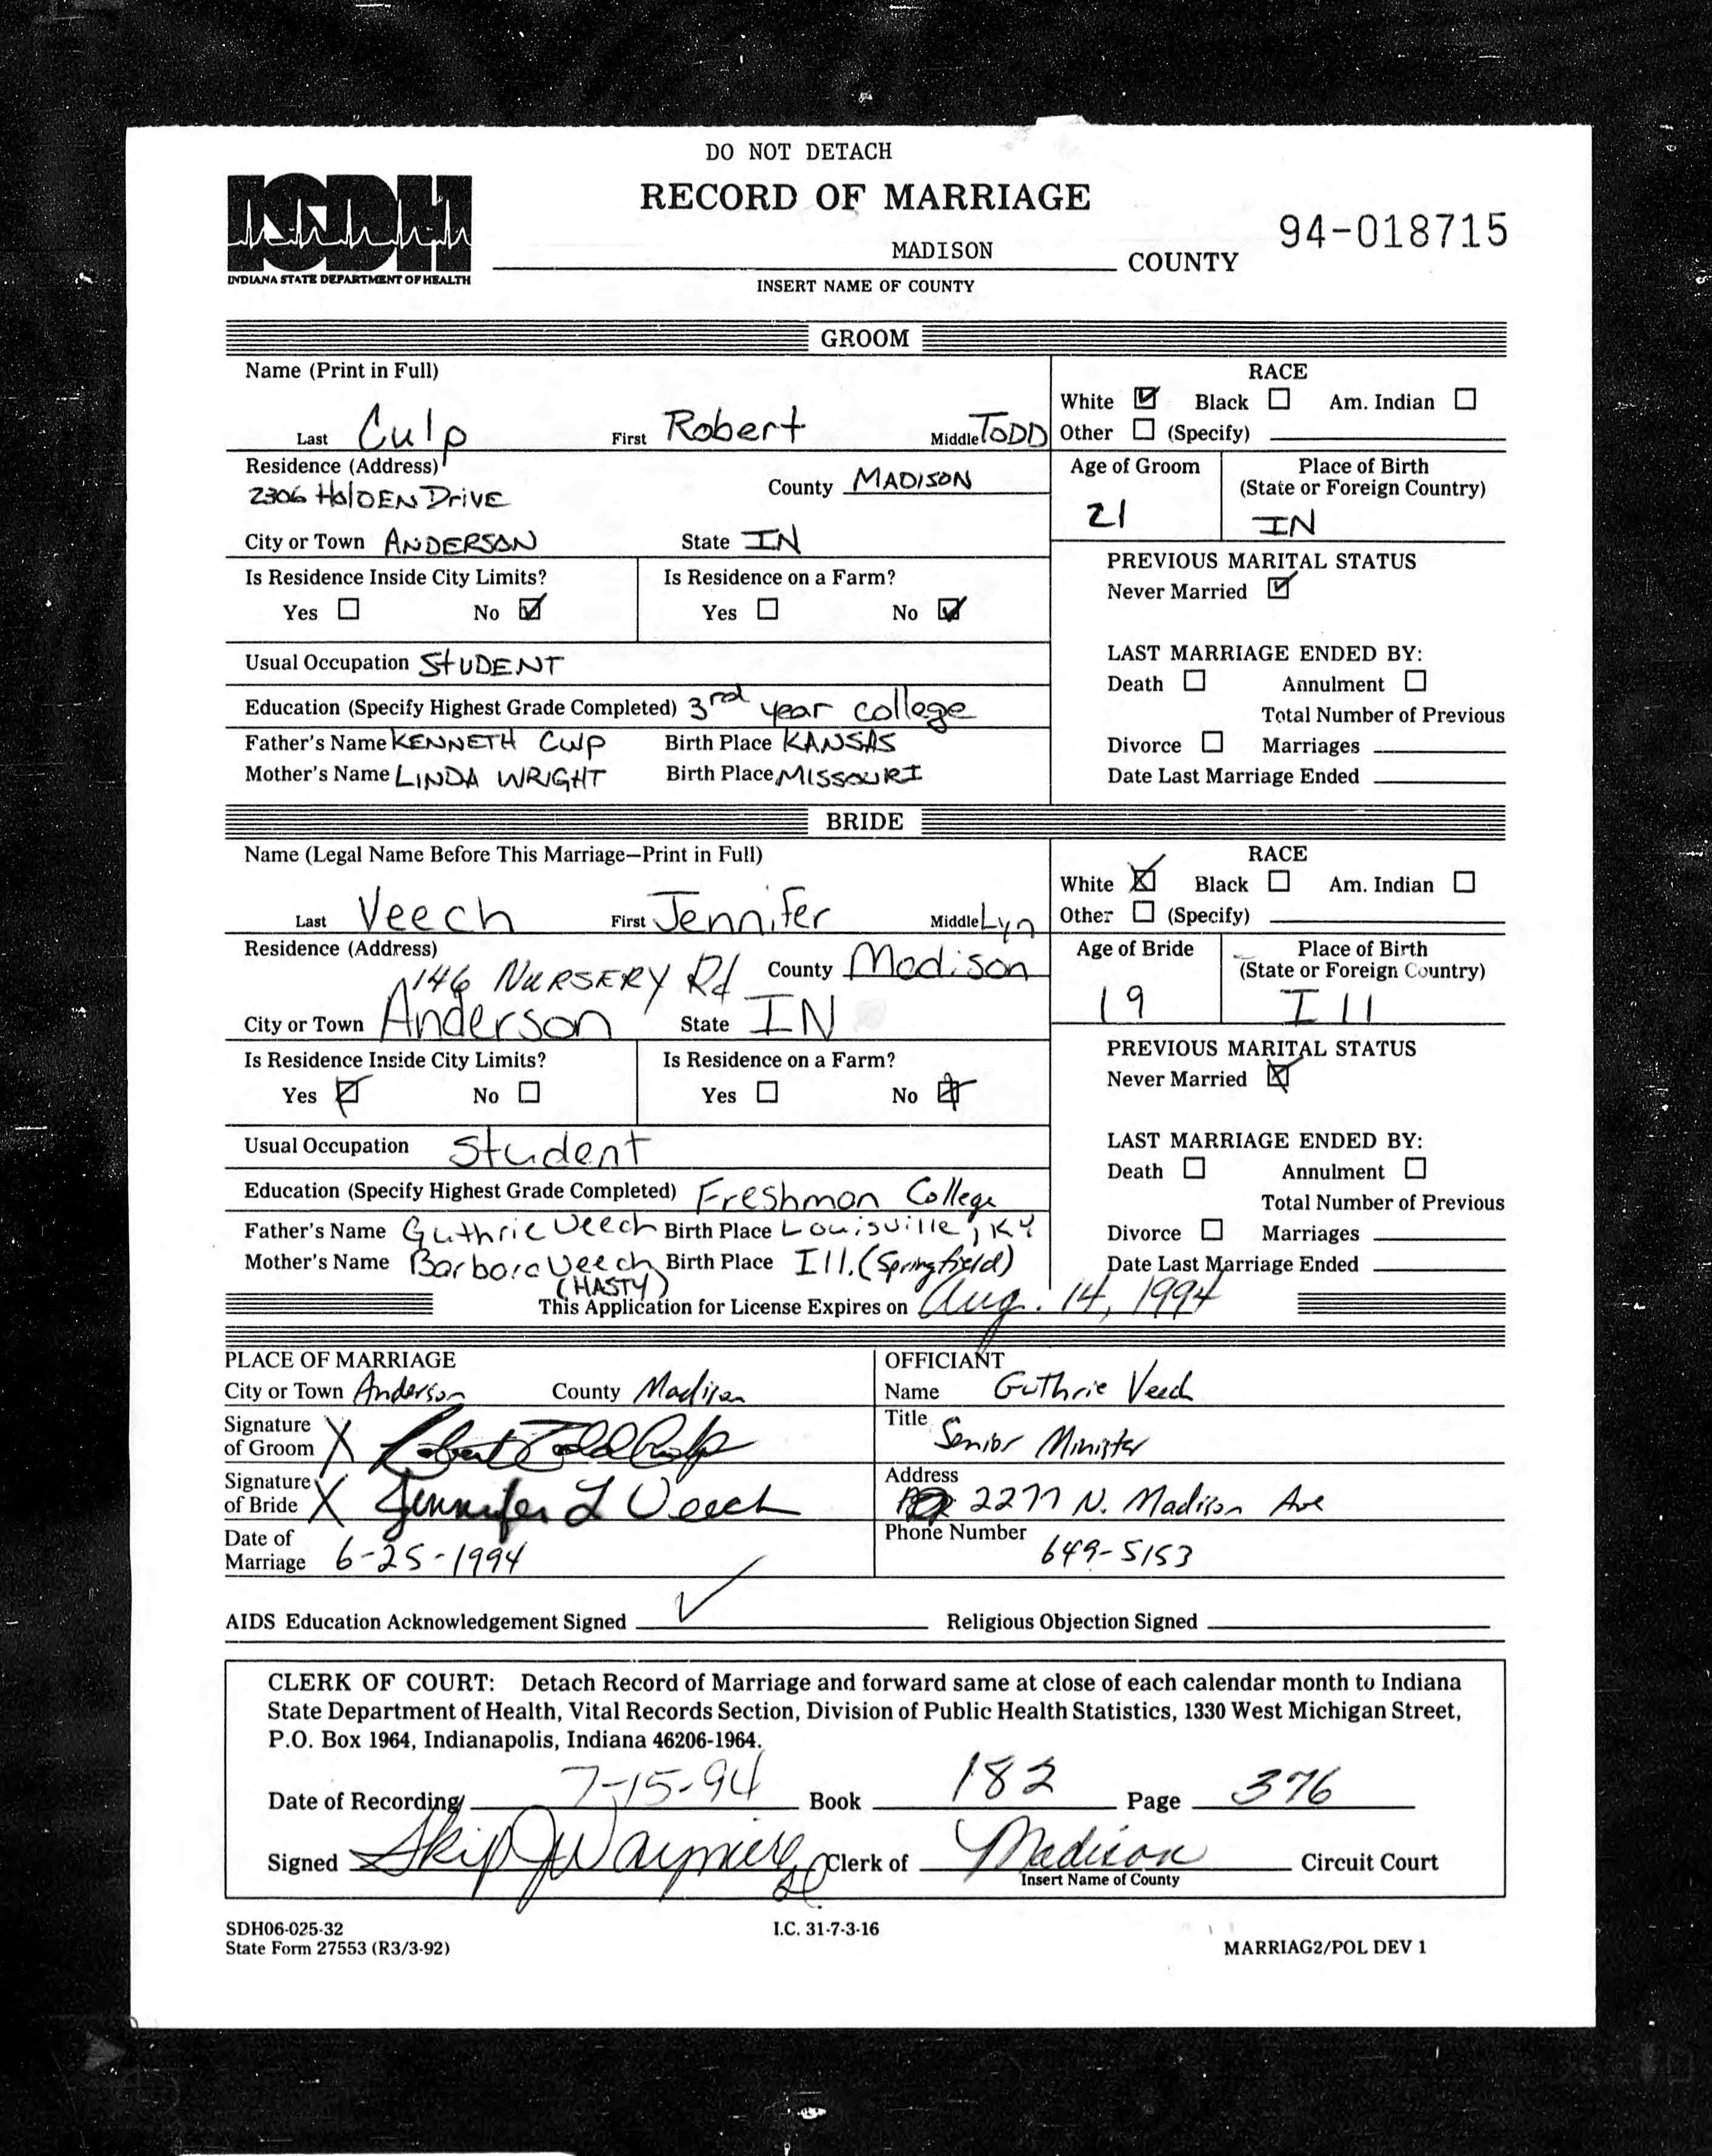 DO NOT DETACH
ISDH
INDIANA STATE DEPARTMENT OF HEALTH
RECORD OF MARRIAGE
94-018715
MADISON COUNTY
INSERT NAME OF COUNTY
GROOM
Name (Print in Full)
Last Culp First Robert Middle TODD
RACE
White ☑ Black ☐ Am. Indian ☐
Other ☐ (Specify)
Residence (Address)
2306 HolDEN DriVE County MADISON
City or Town ANDERSON State IN
Age of Groom
21
Place of Birth
(State or Foreign Country)
IN
Is Residence Inside City Limits?
Yes ☐ No ☑
Is Residence on a Farm?
Yes ☐ No ☑
PREVIOUS MARITAL STATUS
Never Married ☑
Usual Occupation StUDENT
Education (Specify Highest Grade Completed) 3rd year college
Father's Name KENNETH CULP Birth Place KANSAS
Mother's Name LINDA WRIGHT Birth Place MISSOURI
LAST MARRIAGE ENDED BY:
Death ☐ Annulment ☐
Total Number of Previous
Divorce ☐ Marriages
Date Last Marriage Ended
BRIDE
Name (Legal Name Before This Marriage—Print in Full)
Last Veech First Jennifer Middle Lyn
RACE
White ☒ Black ☐ Am. Indian ☐
Other ☐ (Specify)
Residence (Address)
146 NURSERY Rd County Madison
City or Town Anderson State IN
Age of Bride
19
Place of Birth
(State or Foreign Country)
Ill
Is Residence Inside City Limits?
Yes ☑ No ☐
Is Residence on a Farm?
Yes ☐ No ☒
PREVIOUS MARITAL STATUS
Never Married ☒
Usual Occupation Student
Education (Specify Highest Grade Completed) Freshman College
Father's Name Guthrie Veech Birth Place Louisville, KY
Mother's Name Barbara Veech Birth Place Ill. (Springfield)
(HASTY)
LAST MARRIAGE ENDED BY:
Death ☐ Annulment ☐
Total Number of Previous
Divorce ☐ Marriages
Date Last Marriage Ended
This Application for License Expires on Aug. 14, 1994
PLACE OF MARRIAGE
City or Town Anderson County Madison
Signature
of Groom X Robert Todd Culp
Signature
of Bride X Jennifer L Veech
Date of
Marriage 6-25-1994
OFFICIANT
Name Guthrie Veech
Title Senior Minister
Address 2277 N. Madison Ave
Phone Number 649-5153
AIDS Education Acknowledgement Signed ✓ Religious Objection Signed
CLERK OF COURT: Detach Record of Marriage and forward same at close of each calendar month to Indiana
State Department of Health, Vital Records Section, Division of Public Health Statistics, 1330 West Michigan Street,
P.O. Box 1964, Indianapolis, Indiana 46206-1964.
Date of Recording 7-15-94 Book 182 Page 376
Signed Skip J Waymire Clerk of Madison Circuit Court
Insert Name of County
SDH06-025-32
State Form 27553 (R3/3-92)
I.C. 31-7-3-16
MARRIAG2/POL DEV 1